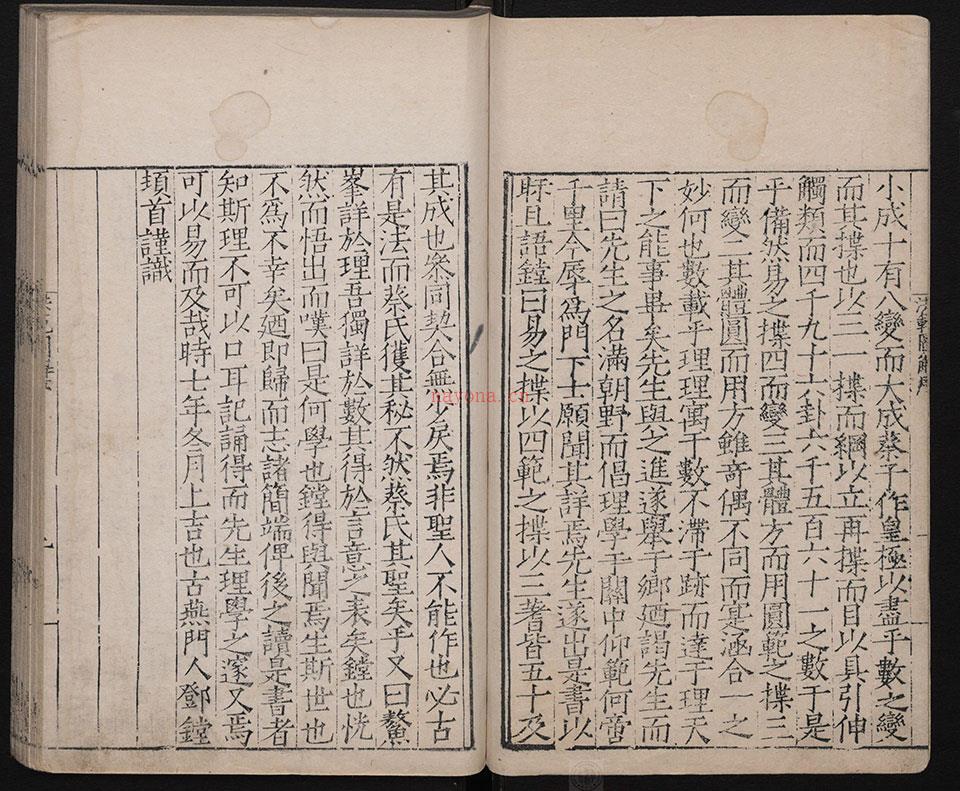 小成十有八變而大成蔡子作皇極以盡乎數之變
而其揲也以三一揲而綱以立再揲而目以具引伸
觸類而四千九十六卦六千五百六十一之數于是
乎備然易之揲四而變三其體方而用圓範之揲三
而變二其體圓而用方雖竒偶不同而寔涵合一之
妙何也數載乎理理寓于數不滯于跡而達于理天
下之能事畢矣先生與之進遂舉于鄉廼謁先生而
請曰先生之名滿朝野而倡理學于關中仰範何啻
千里今辱爲門下士願聞其詳焉先生遂出是書以
眂且語鏜曰易之揲以四範之揲以三蓍皆五十及
其成也衆同契合無少戾焉非聖人不能作也必古
有是法而蔡氏獲其秘不然蔡氏其聖矣乎又曰鰲
峯詳於理吾獨詳於數其得於言意之表矣鏜也恍
然而悟出而嘆曰是何學也鏜得與聞焉生斯世也
不爲不幸矣廼即歸而志諸簡端俾後之讀是書者
知斯理不可以口耳記誦得而先生理學之邃又焉
可以易而及哉時七年冬月上吉也古燕門人鄧鏜
頊首謹識
nayona.cn